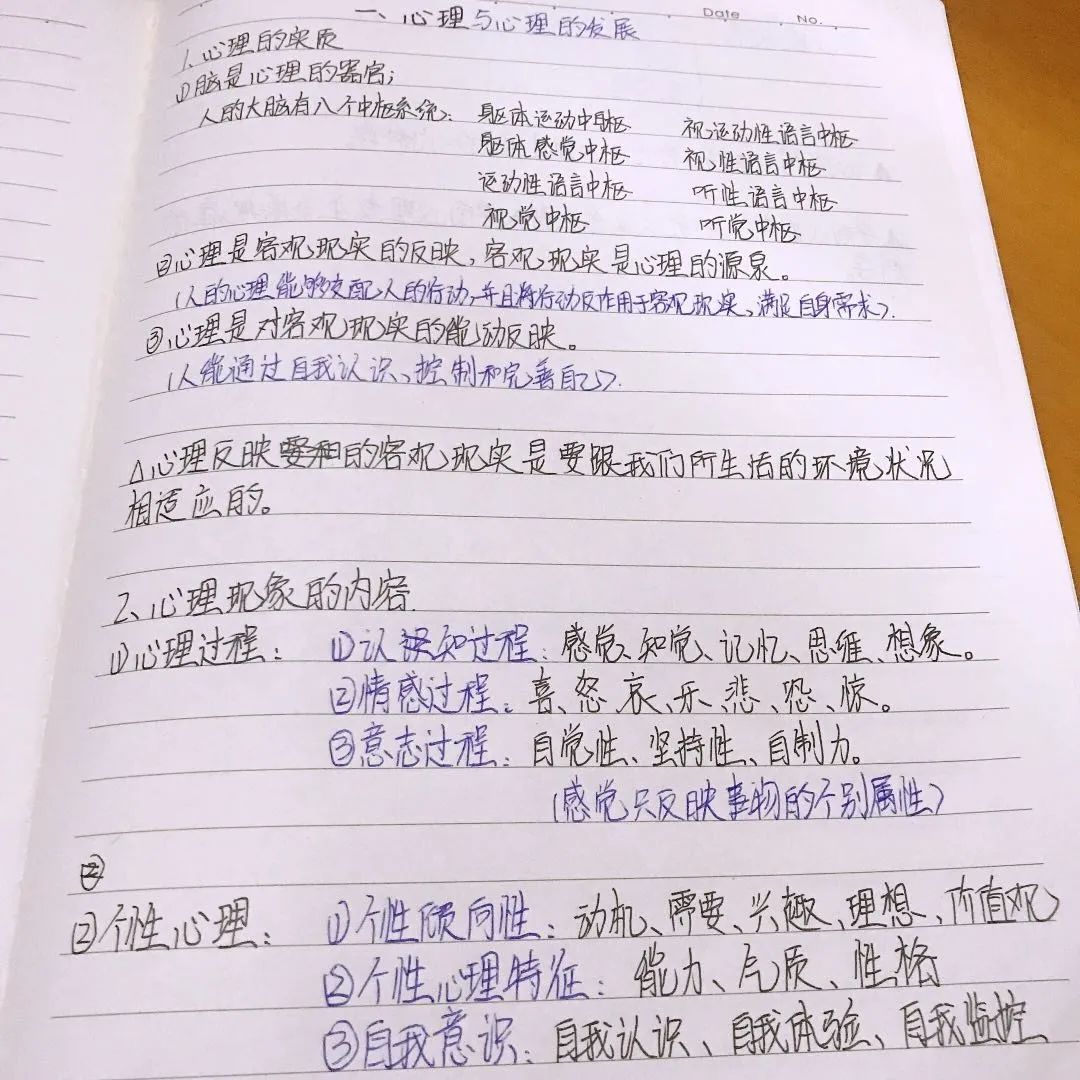 Date No.
一、心理与心理的发展
1、心理的实质
①脑是心理的器官;
人的大脑有八个中枢系统: 躯体运动中枢 视运动性语言中枢
躯体感觉中枢 视性语言中枢
运动性语言中枢 听性语言中枢
视觉中枢 听觉中枢
②心理是客观现实的反映,客观现实是心理的源泉。
(人的心理能够支配人的行动,并且将行动反作用于客观现实、满足自身需求).
③心理是对客观现实的能动反映。
(人能通过自我认识、控制和完善自己).
△心理反映的客观现实是要跟我们所生活的环境状况
相适应的。
2、心理现象的内容.
①心理过程: ①认知过程:感觉、知觉、记忆、思维、想象。
②情感过程:喜、怒、哀、乐、悲、恐、惊。
③意志过程:自觉性、坚持性、自制力。
(感觉只反映事物的个别属性)
②个性心理: ①个性倾向性:动机、需要、兴趣、理想、价值观
②个性心理特征:能力、气质、性格
③自我意识:自我认识、自我体验、自我监控